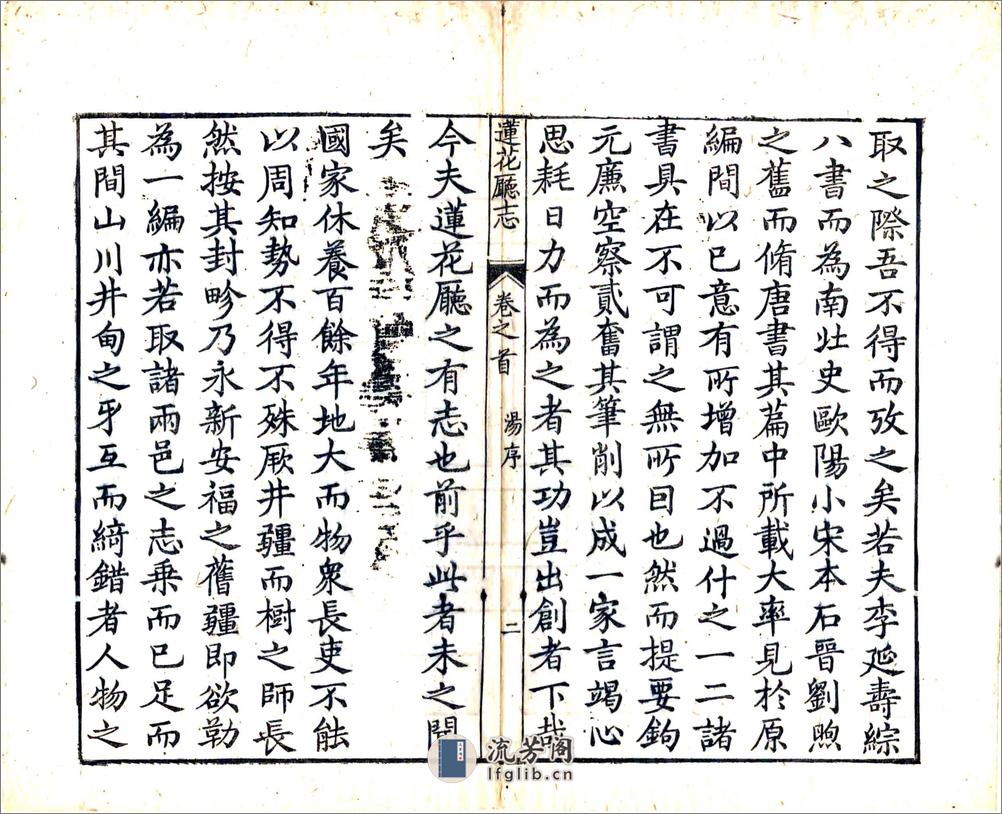 取之際吾不得而攷之矣若夫李延壽綜
八書而為南北史歐陽小宋本石晉劉煦
之舊而脩唐書其篇中所載大率見於原
編間以已意有所增加不過什之一二諸
書具在不可謂之無所因也然而提要鉤
元廉空察貳奮其筆削以成一家言竭心
思耗日力而為之者其功豈出創者下哉
蓮花廳志
卷之首
湯序
二
今夫蓮花廳之有志也前乎此者未之聞
矣
國家休養百餘年地大而物衆長吏不能
以周知勢不得不殊厥井疆而樹之師長
然按其封畛乃永新安福之舊疆即欲勒
為一編亦若取諸兩邑之志乗而已足而
其間山川井甸之牙互而綺錯者人物之
流芳阁
lfglib.cn